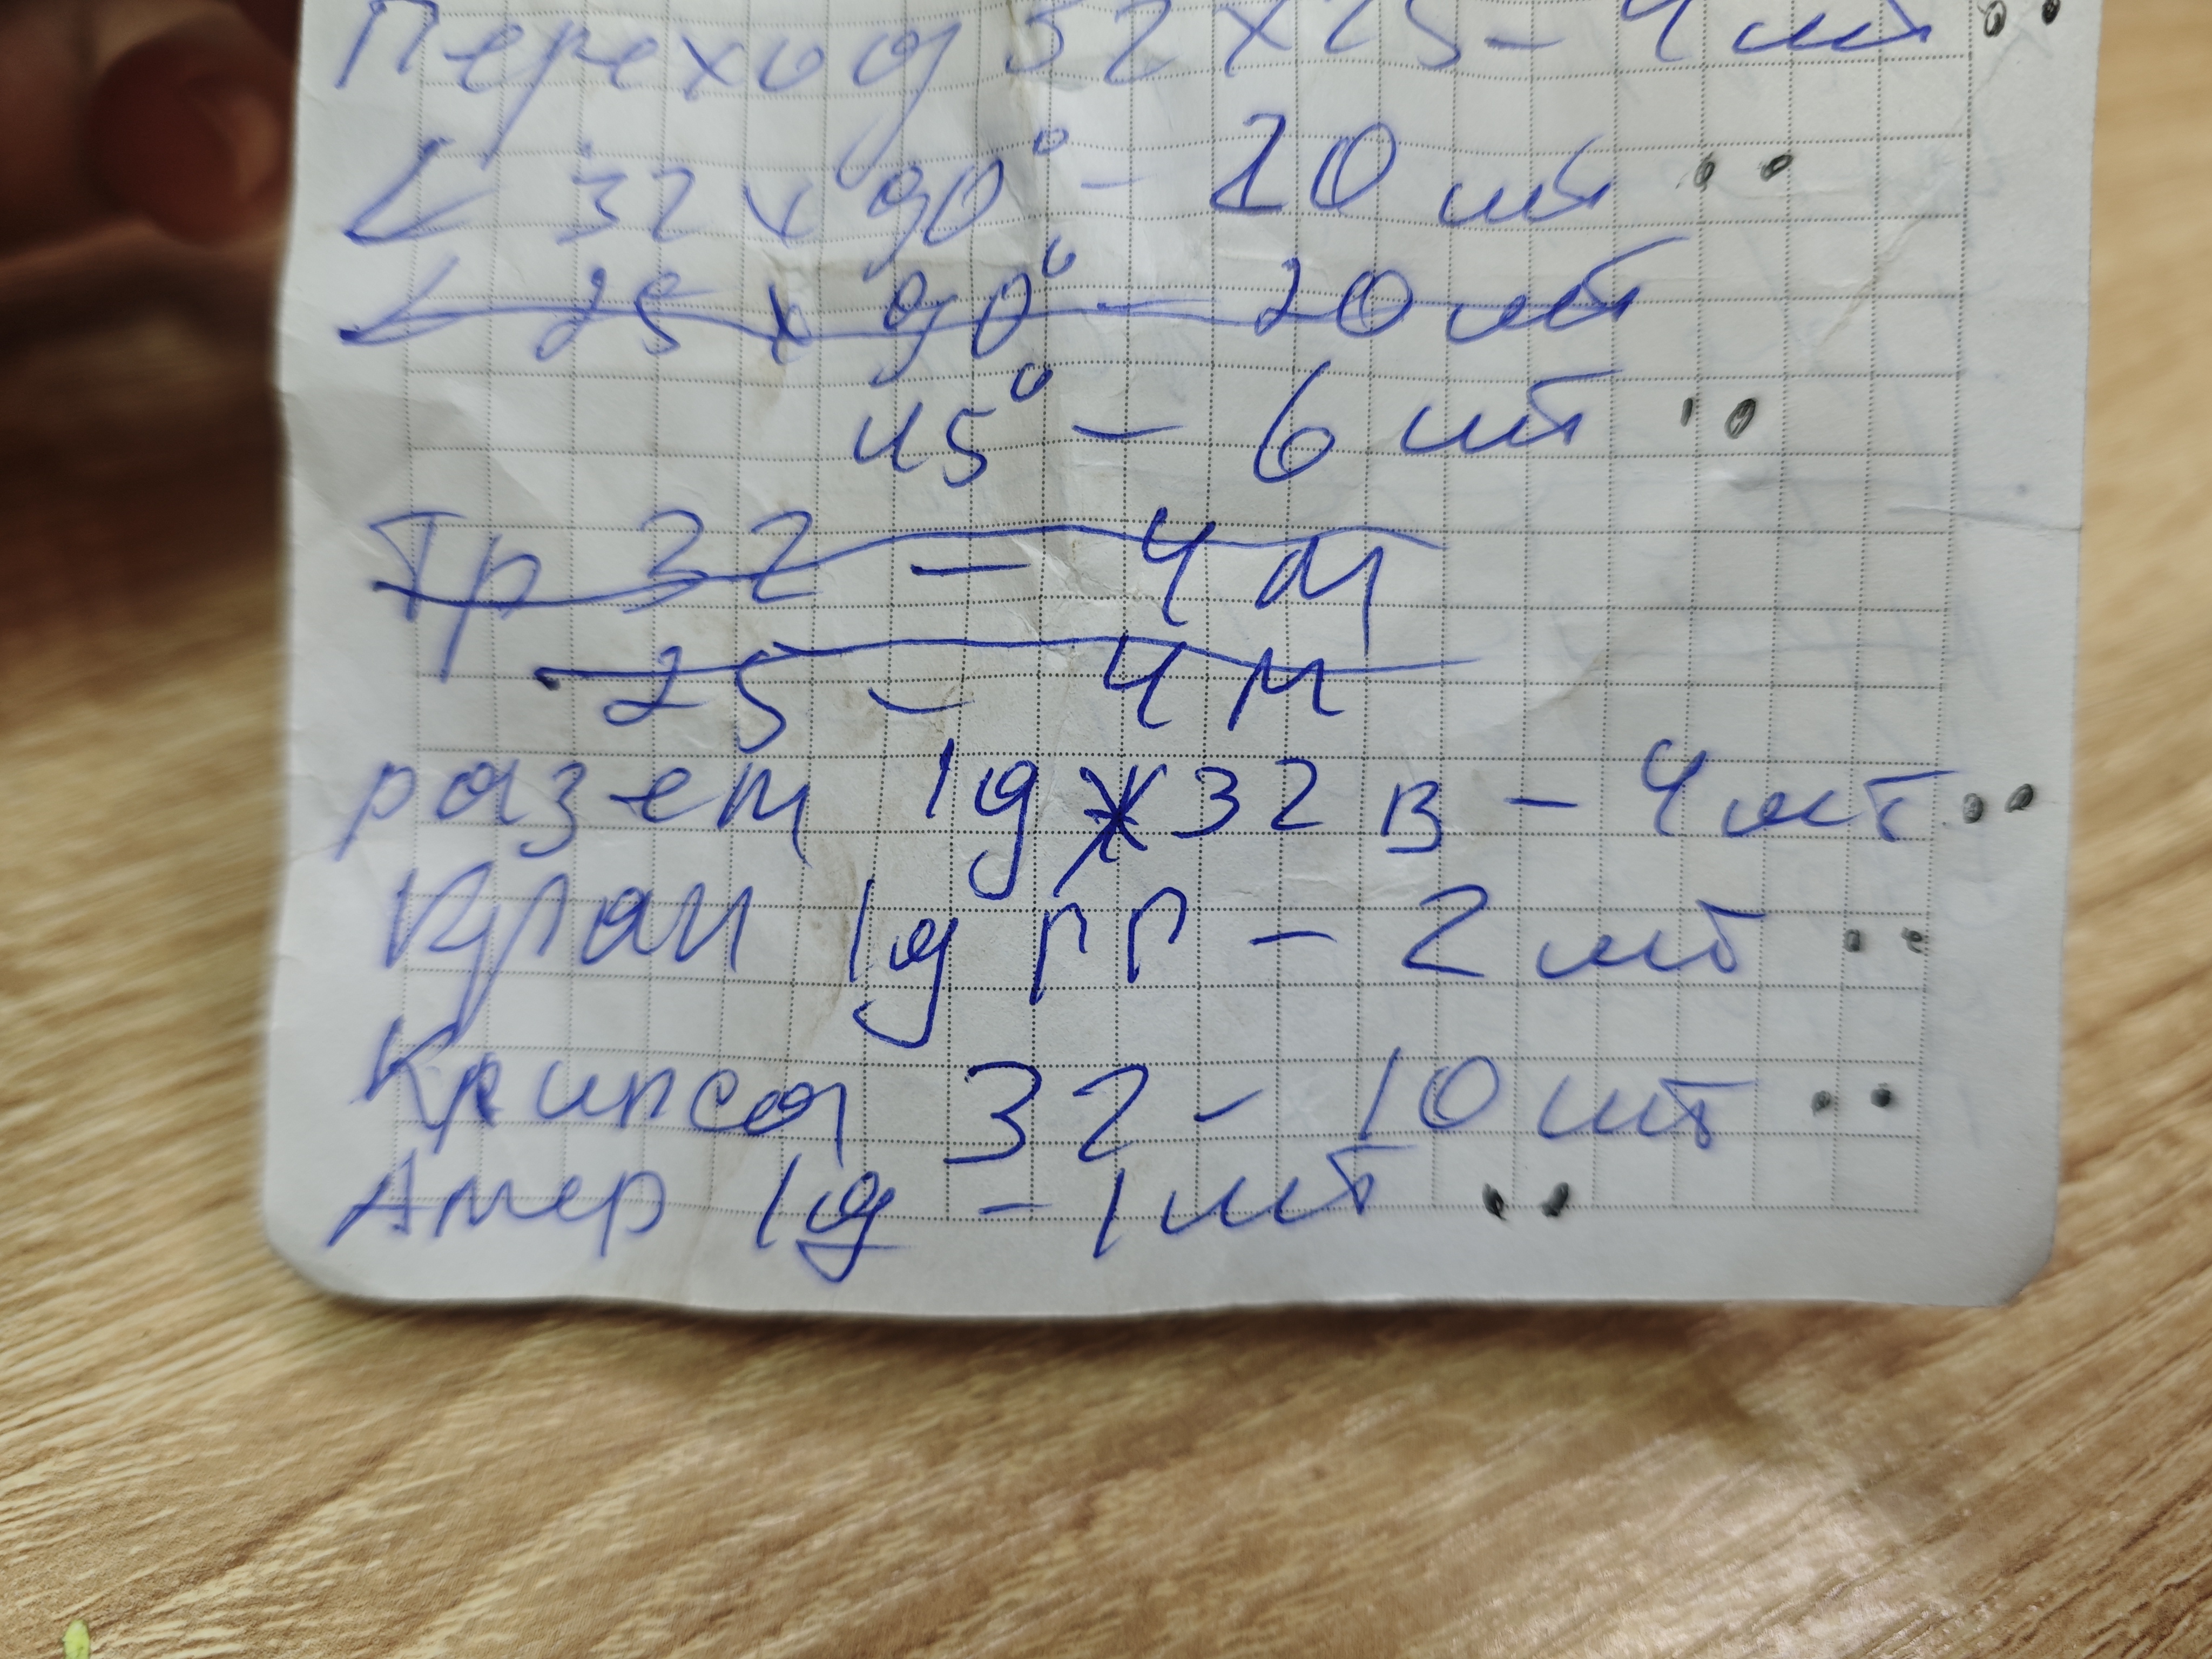 Переход 32х25 - 4 шт
∠ 32 х 90° - 20 шт
∠ 25 х 90° - 20 шт
45° - 6 шт
Тр 32 - 4 м
25 - 4 м
разем 1д*32 в - 4 шт
Кран 1д гг - 2 шт
Крипса 32 - 10 шт
Амер 1д - 1 шт